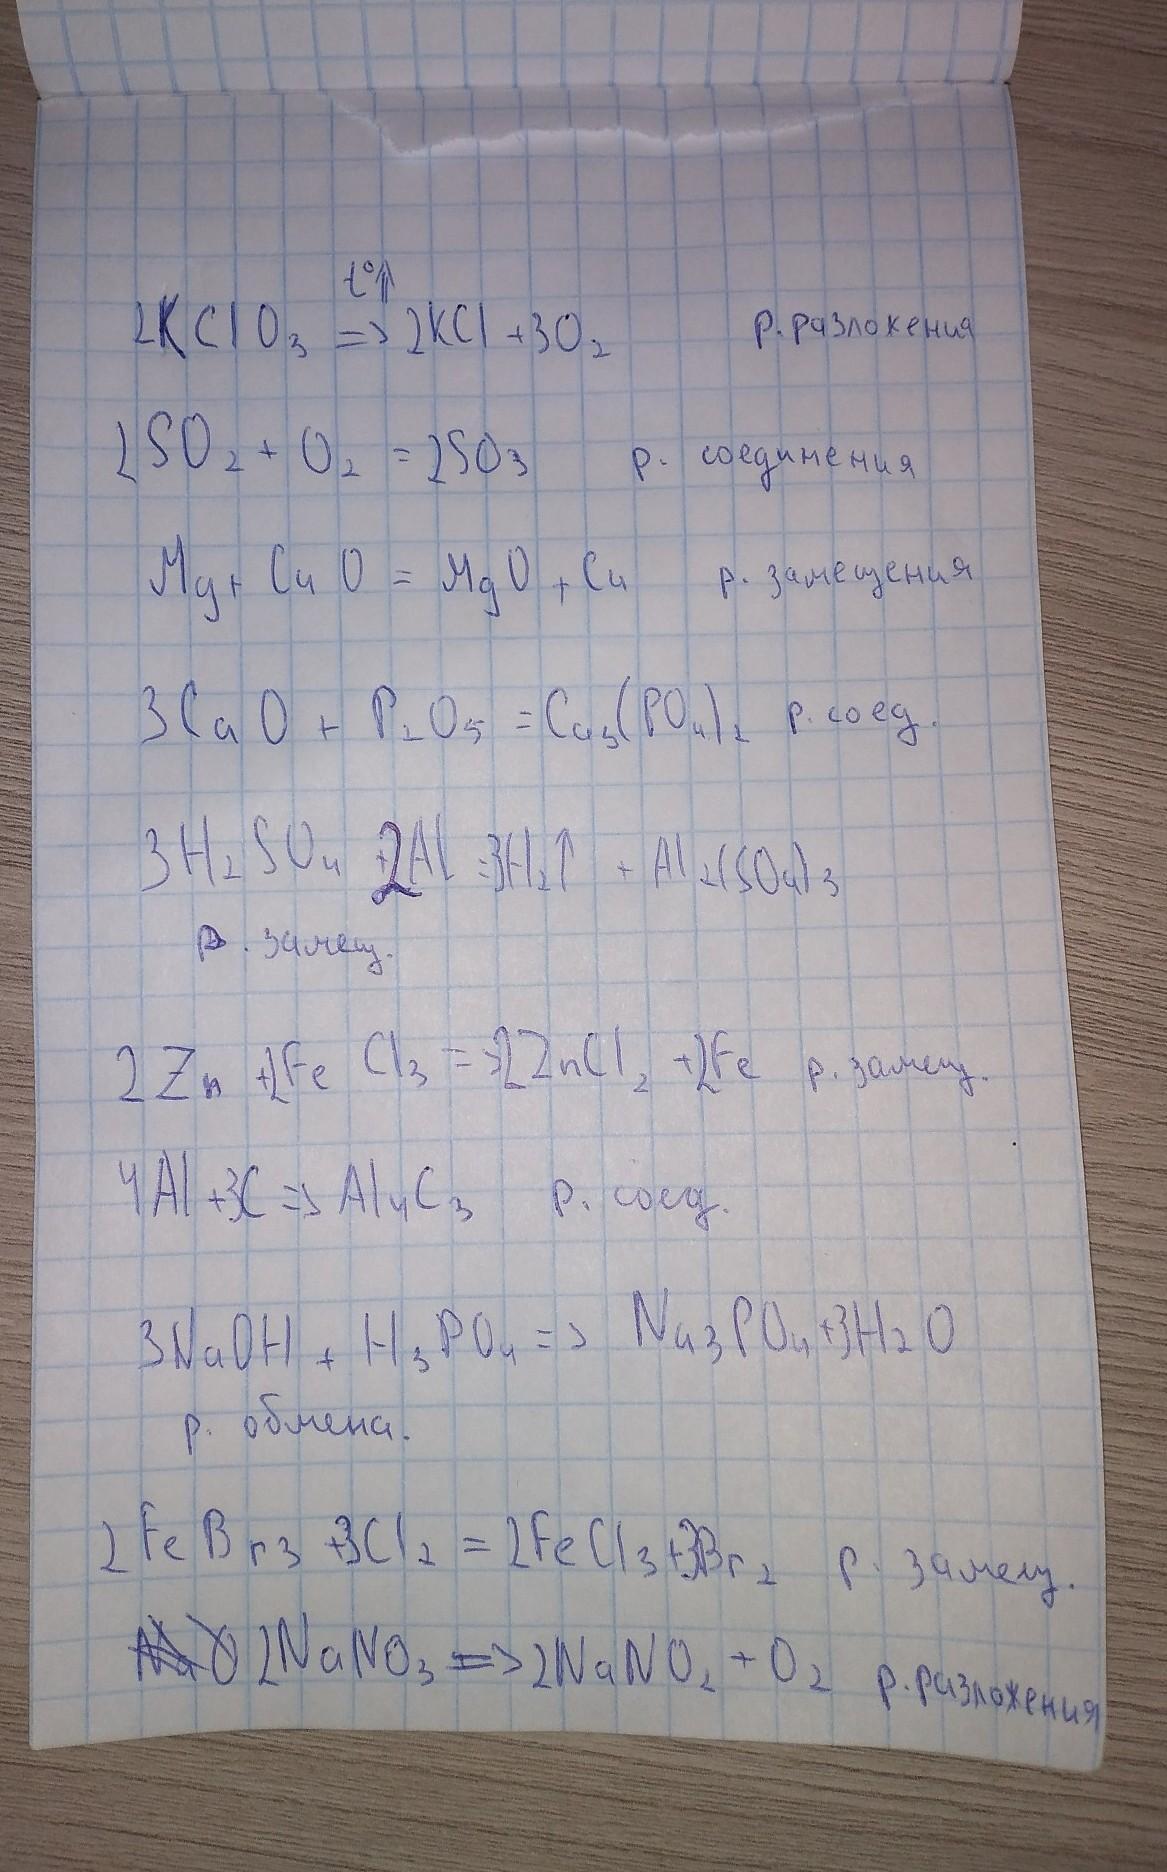 t°⇑
2KClO₃ => 2KCl + 3O₂ р. разложения
2SO₂ + O₂ = 2SO₃ р. соединения
Mg + CuO = MgO + Cu р. замещения
3CaO + P₂O₅ = Ca₃(PO₄)₂ р. соед.
3H₂SO₄ + 2Al = 3H₂↑ + Al₂(SO₄)₃
р. замещ.
2Zn + 2FeCl₃ => 2ZnCl₂ + 2Fe р. замещ.
4Al + 3C => Al₄C₃ р. соед.
3NaOH + H₃PO₄ => Na₃PO₄ + 3H₂O
р. обмена.
2FeBr₃ + 3Cl₂ = 2FeCl₃ + 3Br₂ р. замещ.
2NaNO₃ => 2NaNO₂ + O₂ р. разложения